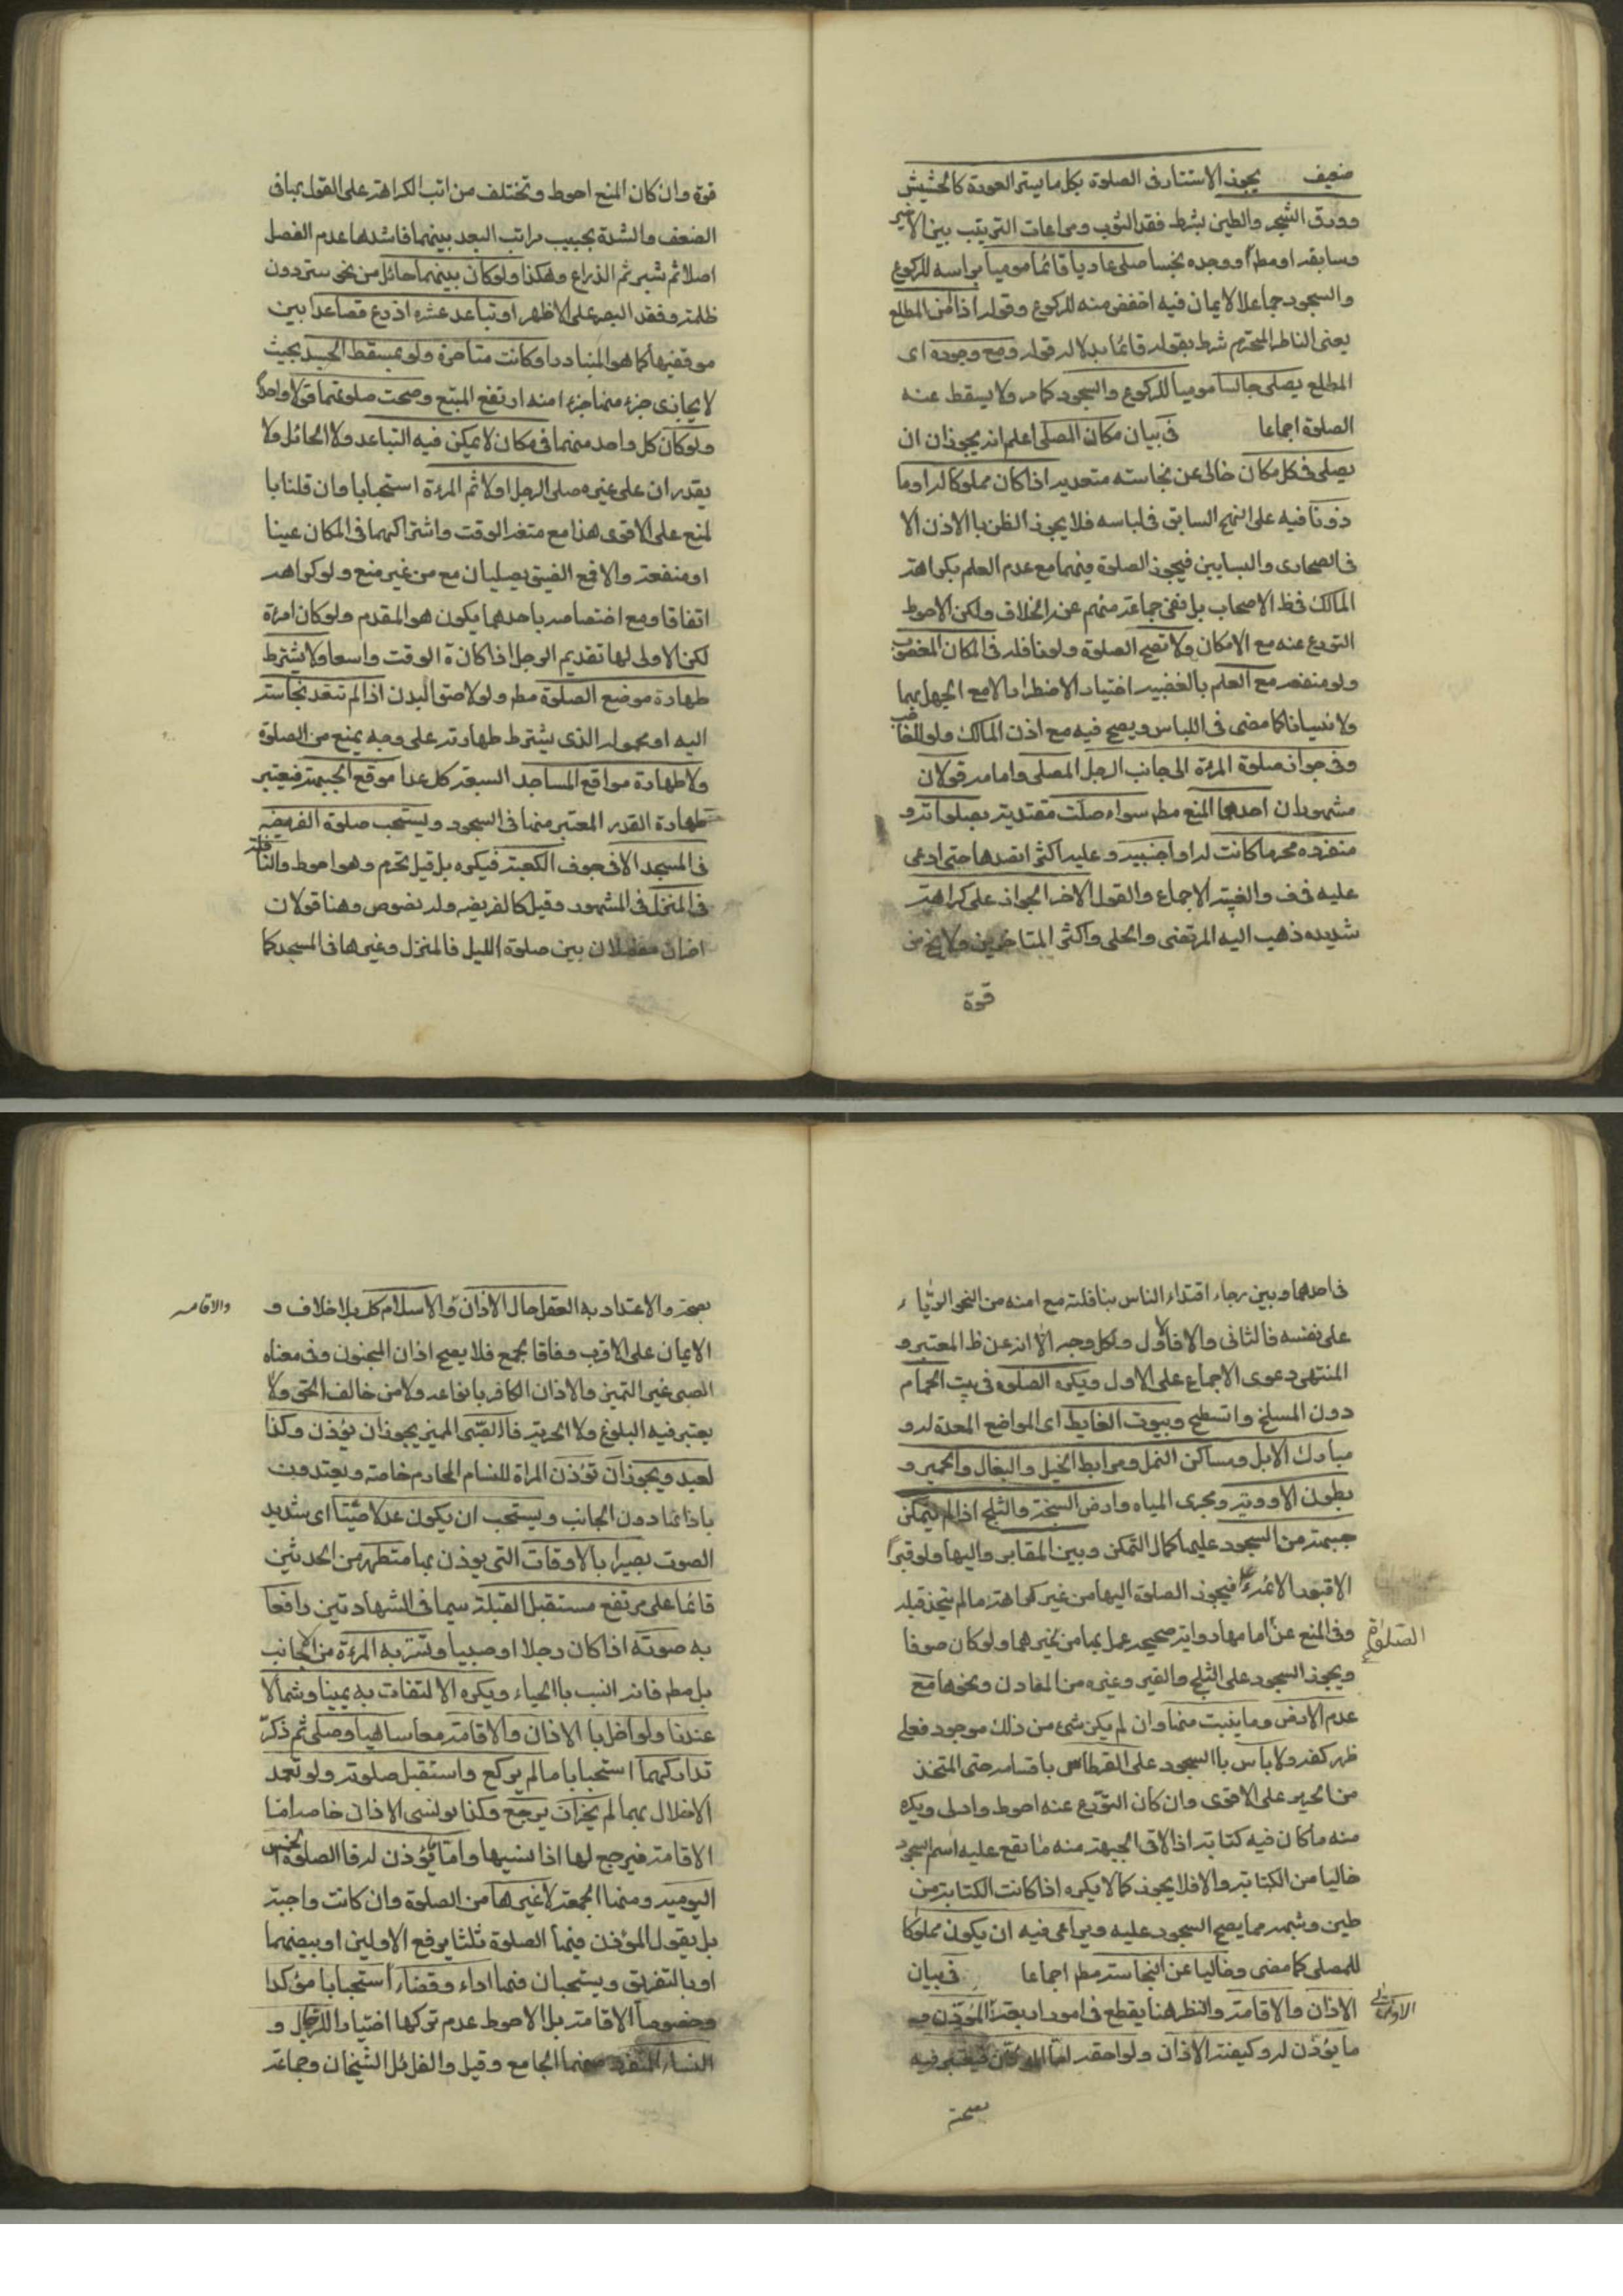 ضعيف يجوز الاستتار فى الصلوة بكل ما يستر العورة كالحشيش
وورق الشجر والطين بشرط فقد الثوب ومراعات الترتيب بين الاخير
وسابقه او مطا ووجده نجسا صلى عاديا قائما موميا براسه للركوع
والسجود جماعلا الايمان فيه اخفض منه للركوع وقوله اذا امن المطلع
يعنى الناظر المحترم شرط بقوله قائما بدلاله قوله ومع وجوده اى
المطلع يصلى جالسا موميا للركوع والسجود كما مر ولا يسقط عنه
الصلوة اجماعا فى بيان مكان المصلى اعلم انه يجوز ان ان
يصلى فى كل مكان خالى عن نجاسته متعديه اذا كان مملوكا له او ما
ذونا فيه على النهج السابق فى لباسه فلا يجوز الظن باالاذن الا
فى الصحارى والبساتين فيجوز الصلوة فيهما مع عدم العلم بكراهة
المالك فى ظ الاصحاب بل نفى جماعة منهم عنه الخلاف ولكن الاحوط
التورع عنه مع الامكان ولا تصح الصلوة ولو نافله فى المكان المغصوب
ولو منفعه مع العلم بالغصبيه اختيار الاضطرارا لا مع الجهل بهما
ولا نسيانا كما مضى فى اللباس ويصح فيه مع اذن المالك ولو للغاصب
وفى جواز صلوة المرئة الى جانب الرجل المصلى وامامه قولان
مشهوران احدهما المنع مطم سواء صلت مقتدية بصلواته و
منفرده محرما كانت له او اجنبيه وعليه اكثر القدهاء حتى ادعى
عليه فى ف والغنية الاجماع والقول الاخر الجواز على كراهية
شديده ذهب اليه المرتضى والحلى واكثر المتاخرين ولا يخ من
قوة
قوة وان كان المنع احوط وتختلف مراتب الكراهة على القول بها فى
الضعف والشدة بحسب مراتب البعد بينهما فاشدها عدم الفصل
اصلا ثم شبر ثم الذراع وهكذا ولو كان بينهما حائل من نحو ستر دون
ظلمة وفقد البصر على الاظهر او تباعد عشره اذرع فصاعدا بين
موقفيها كما هو المتبادر او كانت متاخرة ولو بمسقط الجسد بحيث
لا يحاذى جزء منها جزء امنه ارتفع المنع وصحت صلوتهما قولا واحدا
ولو كان كل واحد منهما فى مكان لا يمكن فيه التباعد ولا الحائل ولا
يقدران على غيره صلى الرجل اولا ثم المرءة استحبابا وان قلنا با
لمنع على الاقوى هذا مع متغه الوقت واشتراكهما فى المكان عينا
او منفعة والا فع الضيق يصليان مع من غير منع ولو كراهه
اتفاقا ومع اختصاصه باحدهما يكون هو المقدم ولو كان امرئة
لكن الاولى لها تقديم الرجل اذا كان ة الوقت واسعا ولا يشترط
طهارة موضع الصلوة مطم ولو لاصق البدن اذا لم تتعد نجاسته
اليه او محموله الذى يشترط طهارته على وجه يمنع من الصلوة
ولا طهارة مواقع المساجد السبعة كل عدا موقع الجبهة فيعتبر
طهارة القدر المعتبر منها فى السجود ويستحب صلوة الفريضه
فى المسجد الا فى جوف الكعبة فيكره بل قيل تحرم وهو احوط والنافلة
فى المنزل فى المشهور وقيل كالفريضه وله نصوص وهنا قولان
اخران مفصلان بين صلوة الليل فالمنزل وغيرها فى المسجد كما
فى احدهما وبين رجاء اقتداء الناس بنافلته مع امنه من النحو الرياء
على نفسه فالثانى والا فالاول ولكل وجه الا انه عن ظ المعتبر و
المنتهى دعوى الاجماع على الاول ويكره الصلوة فى بيت الحمام
دون المسلخ واتسطح وبيوت الغايط اى المواضع المعدة له و
مبارك الابل ومساكن النمل ومرابط الخيل والبغال والحمير و
بطون الاوويه ومجرى المياه وارض السبخة والثلج اذا لم يتمكن
جبهته من السجود عليهما كمال التمكن وبين المقابر واليها ولو قبرا
الا قبور الائمة ع فيجوز الصلوة اليها من غير كراهة ما لم يتخذ قبله
وفى المنع عن امامها رواية صحيحه عمل بها من غيرهما ولو كان صوفا
الصلوة
ويجوز السجود على الثلج والقير وغيره من المعادن ونحوها مع
عدم الارض وما ينبت منها وان لم يكن شئ من ذلك موجود فعلى
ظهر كفه ولا باس باالسجود على القرطاس باقسامه حتى المتخذ
من الحرير على الاقوى وان كان التورع عنه احوط واولى ويكره
منه ما كان فيه كتابة اذا لاقى الجبهة منه ما يقع عليه اسم السجود
خاليا من الكتابة والا فلا يجوز كما لا يكره اذا كانت الكتابة من
طين وشبهه مما يصح السجود عليه ويراعى فيه ان يكون مملوكا
للمصلى كما مضى وخاليا عن النجاسة مطم اجماعا فى بيان
الاذان والاقامة والنظر هنا يقطع فى امور اربعة المؤذن و
ما يؤذن له وكيفية الاذان ولواحقه اما المؤذن فيعتبر فيه
صحة
والاقامه
بصحة والاعتداد به العقل حال الاذان و الاسلام كل بلا خلاف و
الايمان على الاقرب وفاقا لجمع فلا يصح اذان المجنون وفى معناه
الصبى غير التميز والاذان الكافر بانواعه ولا من خالف الحق ولا
يعتبر فيه البلوغ ولا الحرية فاالصبى المميز يجوز ان يؤذن وكذا
لعبد ويجوز ان تؤذن المراة للنساء المحارم خاصة ويعتدون
باذانها دون الجانب ويستحب ان يكون عدلا صيتا اى شديد
الصوت بصيرا بالاوقات التى يوذن بها متطهر من الحدثين
قائما على مرتفع مستقبل القبلة سيما فى الشهادتين رافعا
به صوته اذا كان رجلا او صبيا وتسر به المرءة من الاجانب
بل مطم فانه انسب باالحياء ويكره الالتفات به يمينا وشمالا
عندنا ولو اخل با الاذان والاقامة معا ساهيا وصلى ثم ذكر
تداركهما استحبابا ما لم يركع واستقبل صلوته ولو تعمد
الاخلال بهما لم يجز ان يرجع وكذا لو نسى الاذان خاصه امّا
الاقامة فيرجع لها اذا نسيها واما ما يؤذن له فا الصلوة الخمس
اليوميه ومنها الجمعة لا غيرها من الصلوة وان كانت واجبة
بل يقول المؤذن فيها الصلوة ثلثا يرفع الاولين او بيضهما
او بالتفريق ويستحبان فيها اداء وقضاء استحبابا مؤكدا
وخصوصا الاقامة بل الاحوط عدم تركها اختيارا للرجال و
النساء للمنفرد منهما الجامع وقيل والقائل الشيخان وجماعة